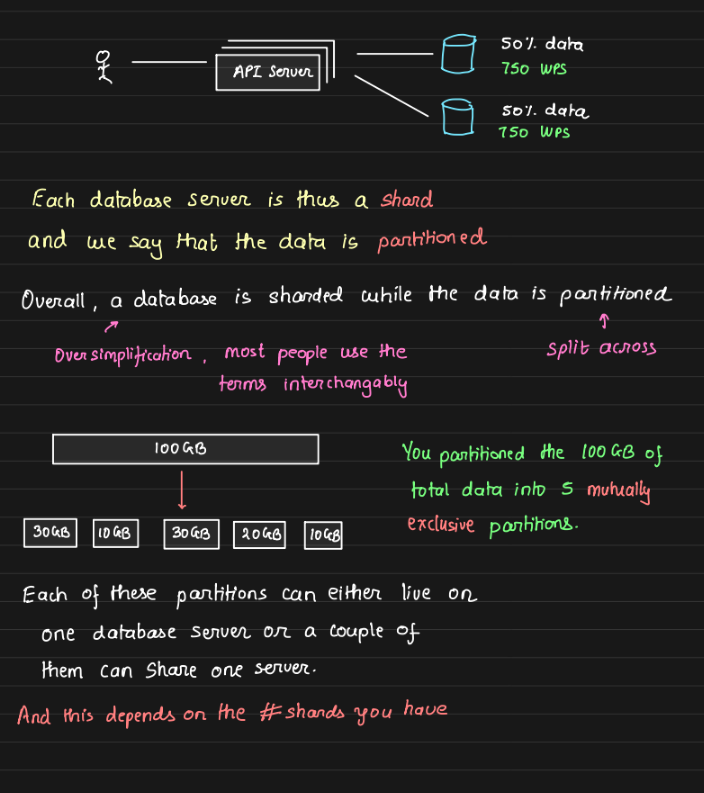 API Server
50% data
750 WPS
50% data
750 WPS
Each database server is thus a shard
and we say that the data is partitioned
Overall, a database is sharded while the data is partitioned
Oversimplification, most people use the
terms interchangably
split across
100GB
30GB 10GB 30GB 20GB 10GB
You partitioned the 100GB of
total data into 5 mutually
exclusive partitions.
Each of these partitions can either live on
one database server or a couple of
them can share one server.
And this depends on the #shards you have